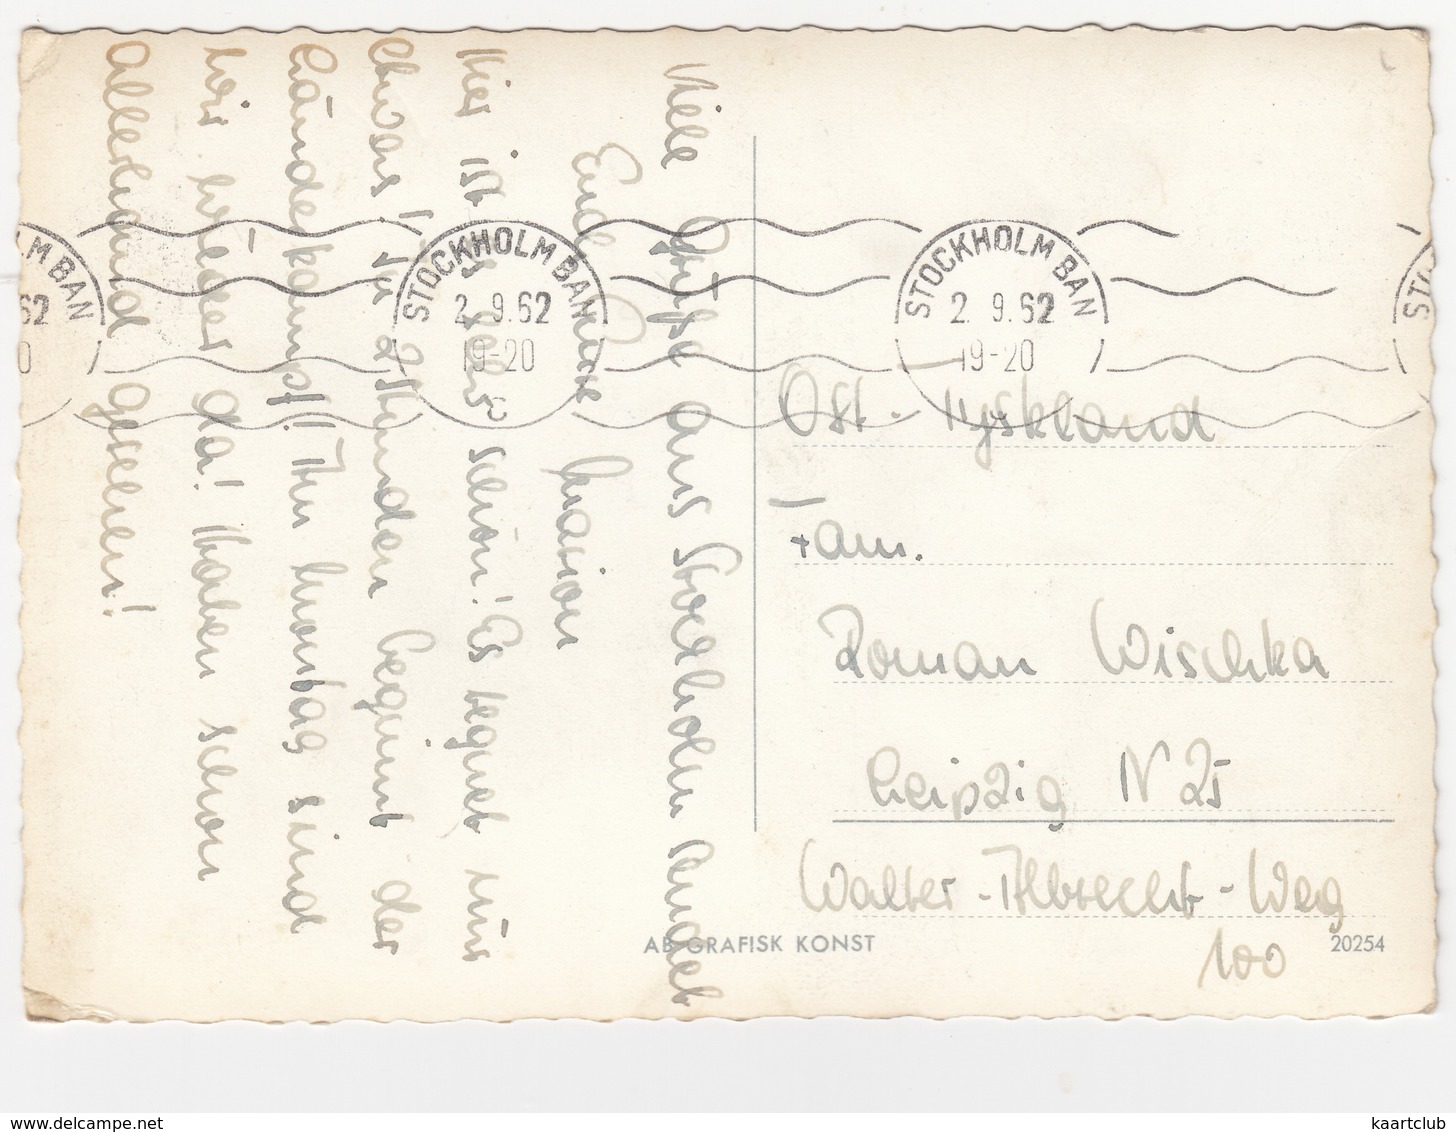 Viele Grüße aus Stockholm sendet
Euch Eure Marion
Hier ist es sehr schön! Es regnet nur
etwas! In 2 Stunden beginnt der
Länderkampf!! Am Montag sind
wir wieder da! Haben schon
allerhand gesehen!
STOCKHOLM BAN
2. 9.62
19-20
STOCKHOLM BAN
2. 9.62
19-20
LM BAN
62
0
STO
Ost-Tyskland
Fam.
Roman Wischka
Leipzig N 25
Walter-Albrecht-Weg
100
AB GRAFISK KONST
20254
© kaartclub
www.delcampe.net